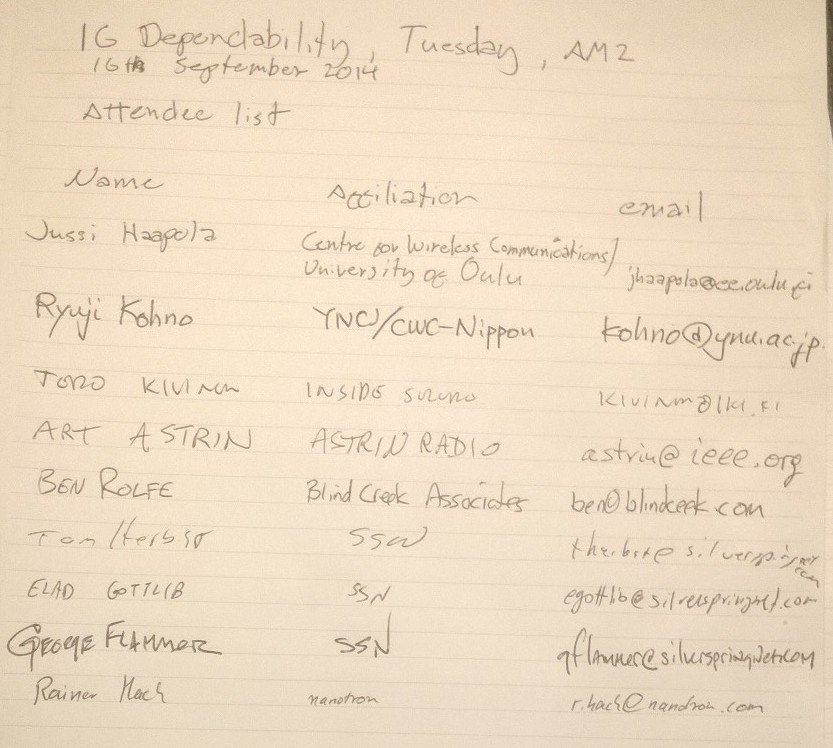 IG Dependability, Tuesday, AM2
16th September 2014
Attendee list
Name Affiliation email
Jussi Haapola Centre for Wireless Communications/
University of Oulu jhaapola@ee.oulu.fi
Ryuji Kohno YNU/CWC-Nippon kohno@ynu.ac.jp.
KIVINEN INSIDE KIVINEN@IKI.FI
ART ASTRIN ASTRIN RADIO astrin@ieee.org
BEN ROLFE Blind Creek Associates ben@blindceek.com
Tom Herbst SSN
ELAD GOTTLIB SSN egottlib@silverspringnet.com
GEORGE FLAMMER SSN gflammer@silverspringnet.com
Rainer Hach nanotron r.hach@nanotron.com